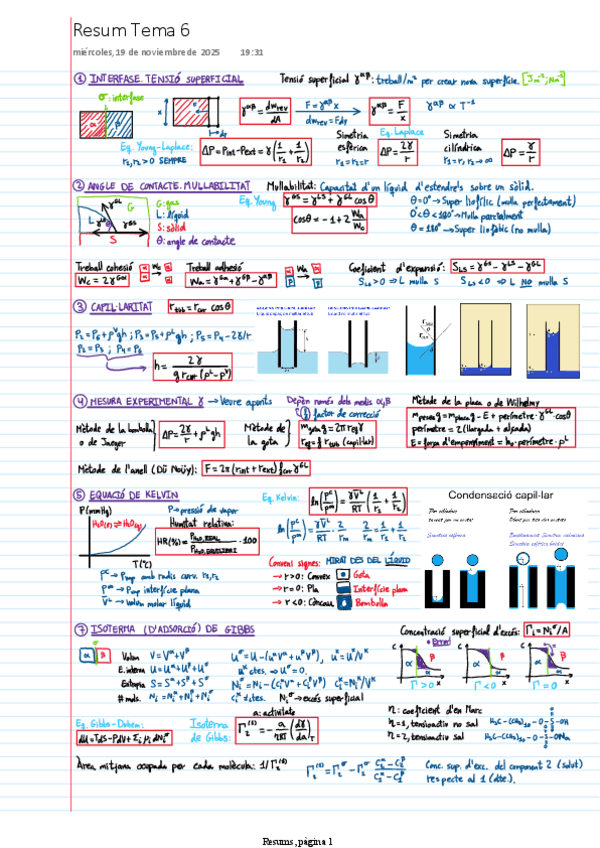 Resum Tema 6
miércoles, 19 de noviembre de 2025 19:31
① INTERFASE. TENSIÓ SUPERFICIAL
Tensió superficial γ^αβ: treball/m² per crear nova superfície. [J·m⁻²; N·m⁻¹]
σ: interfase
γ^αβ = dw_rev/dA
F = γ^αβ x
dw_rev = Fdy
γ^αβ = F/x
γ^αβ ∝ T⁻¹
Eq. Young-Laplace:
r₁, r₂ > 0 SEMPRE
ΔP = P_int - P_ext = γ(1/r₁ + 1/r₂)
Simetria esfèrica r₁ = r₂ = r
Eq. Laplace
ΔP = 2γ/r
Simetria cilíndrica r₁ = r, r₂ → ∞
ΔP = γ/r
② ANGLE DE CONTACTE. MULLABILITAT
Mullabilitat: Capacitat d'un líquid d'estendre's sobre un sòlid.
G: gas
L: líquid
S: sòlid
θ: angle de contacte
Eq. Young
γ^GS = γ^LS + γ^GL cosθ
cosθ = -1 + 2 Wa/Wc
θ = 0° → Super liofílic (mulla perfectament)
0 < θ < 180° → Mulla parcialment
θ = 180° → Super liofòbic (no mulla)
Treball cohesió
Wc = 2γ^Gα
Treball adhesió
Wa = γ^Gα + γ^Gβ - γ^αβ
Coeficient d'expansió: S_LS = γ^GS - γ^LS - γ^GL
S_LS > 0 ⇒ L mulla S
S_LS < 0 ⇒ L NO mulla S
③ CAPIL·LARITAT
r_tub = r_cur cosθ
h = 2γ / g r_cur (ρ^L - ρ^V)
④ MESURA EXPERIMENTAL γ → Veure apunts
Depèn només dels medis α, β
factor de correcció
Mètode de la placa o de Wilhelmy
Mètode de la bombolla o de Jaeger
ΔP = 2γ/r + ρ^L gh
Mètode de la gota
m_gota g = 2π r_eq γ
m_pesa g = m_placa g - E + perímetre · γ^GL · cosθ
perímetre = 2(llargada + alçada)
E = força d'empenyiment = h₀ · perímetre · ρ^L
Mètode de l'anell (Dü Noüy): F = 2π(r_int + r_ext) f_cor γ^GL
⑤ EQUACIÓ DE KELVIN
P(mmHg)
H₂O(l) ⇌ H₂O(g)
T(°C)
P → pressió de vapor
Humitat relativa:
HR(%) = P_H₂O,REAL / P_H₂O,EQUILIBRI · 100
Eq. Kelvin:
ln(P^c/P^∞) = γV̄^L/RT (1/r₁ + 1/r₂)
ln(P^c/P^∞) = γV̄^L/RT · 2/r_m
2/r_m = 1/r₁ + 1/r₂
Condensació capil·lar
P^c → P_vap amb radis curv. r₁, r₂
P^∞ → P_vap interfície plana
V̄^L → Volum molar líquid
Conveni signes: MIRAT DES DEL LÍQUID
→ r > 0: Convex Gota
→ r = 0: Pla Interfície plana
→ r < 0: Còncau Bombolla
⑦ ISOTERMA (D'ADSORCIÓ) DE GIBBS
Concentració superficial d'excés: Γᵢ = Nᵢ^σ/A
Volum V = V^α + V^β
E. interna U = U^α + U^β + U^σ
Entropia S = S^α + S^β + S^σ
# mols. Nᵢ = Nᵢ^α + Nᵢ^β + Nᵢ^σ
U^σ = U - (u^α V^α + u^β V^β), u^α = U^α/V^α
Nᵢ^σ = Nᵢ - (cᵢ^α V^α + cᵢ^β V^β) cᵢ^α = Nᵢ^α/V^α
Nᵢ^σ → excés superficial
Γ > 0
Γ < 0
Γ = 0
a: activitate
Eq. Gibbs-Duhem:
dU = TdS - PdV + Σᵢ μᵢ dNᵢ^σ
Isoterma de Gibbs:
Γ₂^(1) = - a/ηRT (dγ/da)_T
η: coeficient d'en Marc
η = 1, tensioactiu no sal
η = 2, tensioactiu sal
Àrea mitjana ocupada per cada molècula: 1/Γ₂^(1)
Γ₂^(1) = Γ₂^σ - Γ₁^σ (C₂^α - C₂^β)/(C₁^α - C₁^β)
Conc. sup. d'exc. del component 2 (solut)
respecte al 1 (dte.).
Resums, página 1